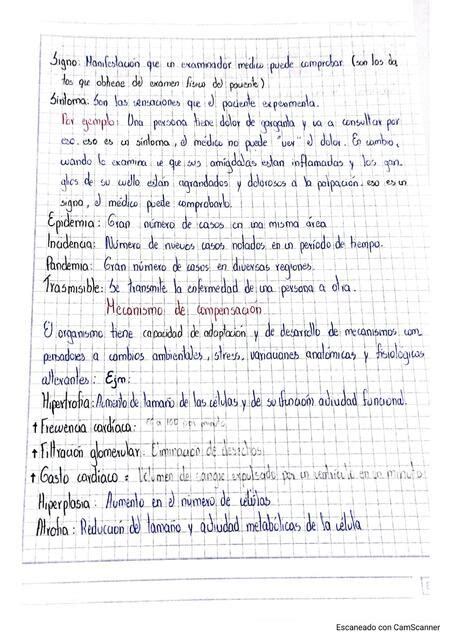 Signo: Manifestación que un examinador médico puede comprobar (son los da
tos que obtiene del examen físico del paciente)
Síntoma: Son las sensaciones que el paciente experimenta.
Por ejemplo: Una persona tiene dolor de garganta y va a consultar por
eso. eso es un síntoma, el médico no puede "ver" el dolor. En cambio,
cuando le examina ve que sus amígdalas estan inflamadas y los gan
glios de su cuello están agrandados y dolorosos a la palpación. eso es un
signo, el médico puede comprobarlo.
Epidemia: Gran número de casos en una misma área
Incidencia: Número de nuevos casos notados en un período de tiempo.
Pandemia: Gran número de casos en diversas regiones.
Trasmisible: Se transmite la enfermedad de una persona a otra.
Mecanismo de compensación
El organismo tiene capacidad de adaptación y de desarrollo de mecanismos com
pensadores a cambios ambientales, stress, variaciones anatómicas y fisiológicas
alterantes: Ejm:
Hipertrofia: Aumento de tamaño de las células y de su función actividad funcional.
↑ Frecuencia cardíaca: a 100 por minuto
↑ Filtración glomerular: Eliminación de desechos
↑ Gasto cardíaco = Volumen de sangre expulsado por un ventrículo en un minuto
Hiperplasia: Aumento en el número de células
Atrofia: Reducción del tamaño y actividad metabólicas de la célula
Escaneado con CamScanner